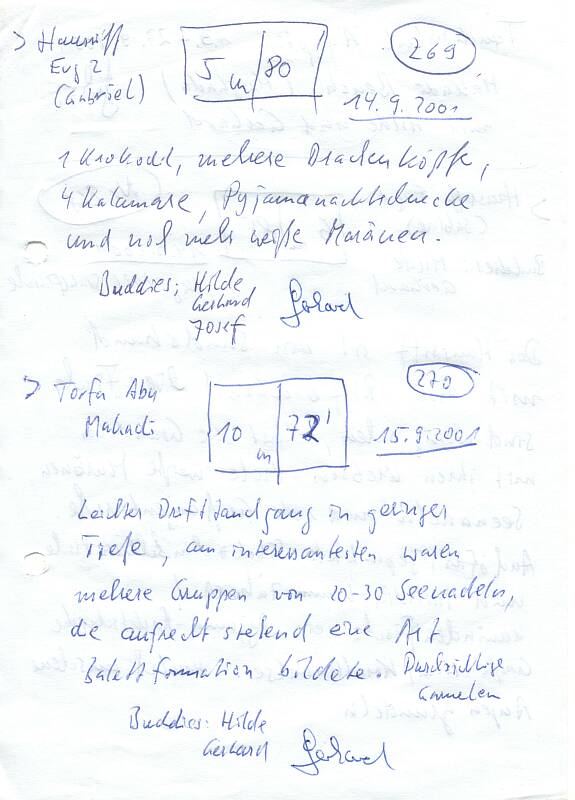 > Hausriff
Evg 2
(Gabriel)
5 m 80
269
14.9.2001
1 Krokodil, mehere Drachenköpfe,
4 Kalamare, Pyjamanachtschnecke
und mehr weiße Moränen.
Buddies: Hilde
Gerhard
Josef
Gerhard
> Torfa Abu
Mahadi
10 m 72'
270
15.9.2001
Leichter Drifttauchgang in geringer
Tiefe, am interessantesten waren
mehere Gruppen von 20-30 Seenadeln,
die aufrecht stehend eine Art
Balettformation bildete. Durchsichtige
Garnelen
Buddies: Hilde
Gerhard
Gerhard